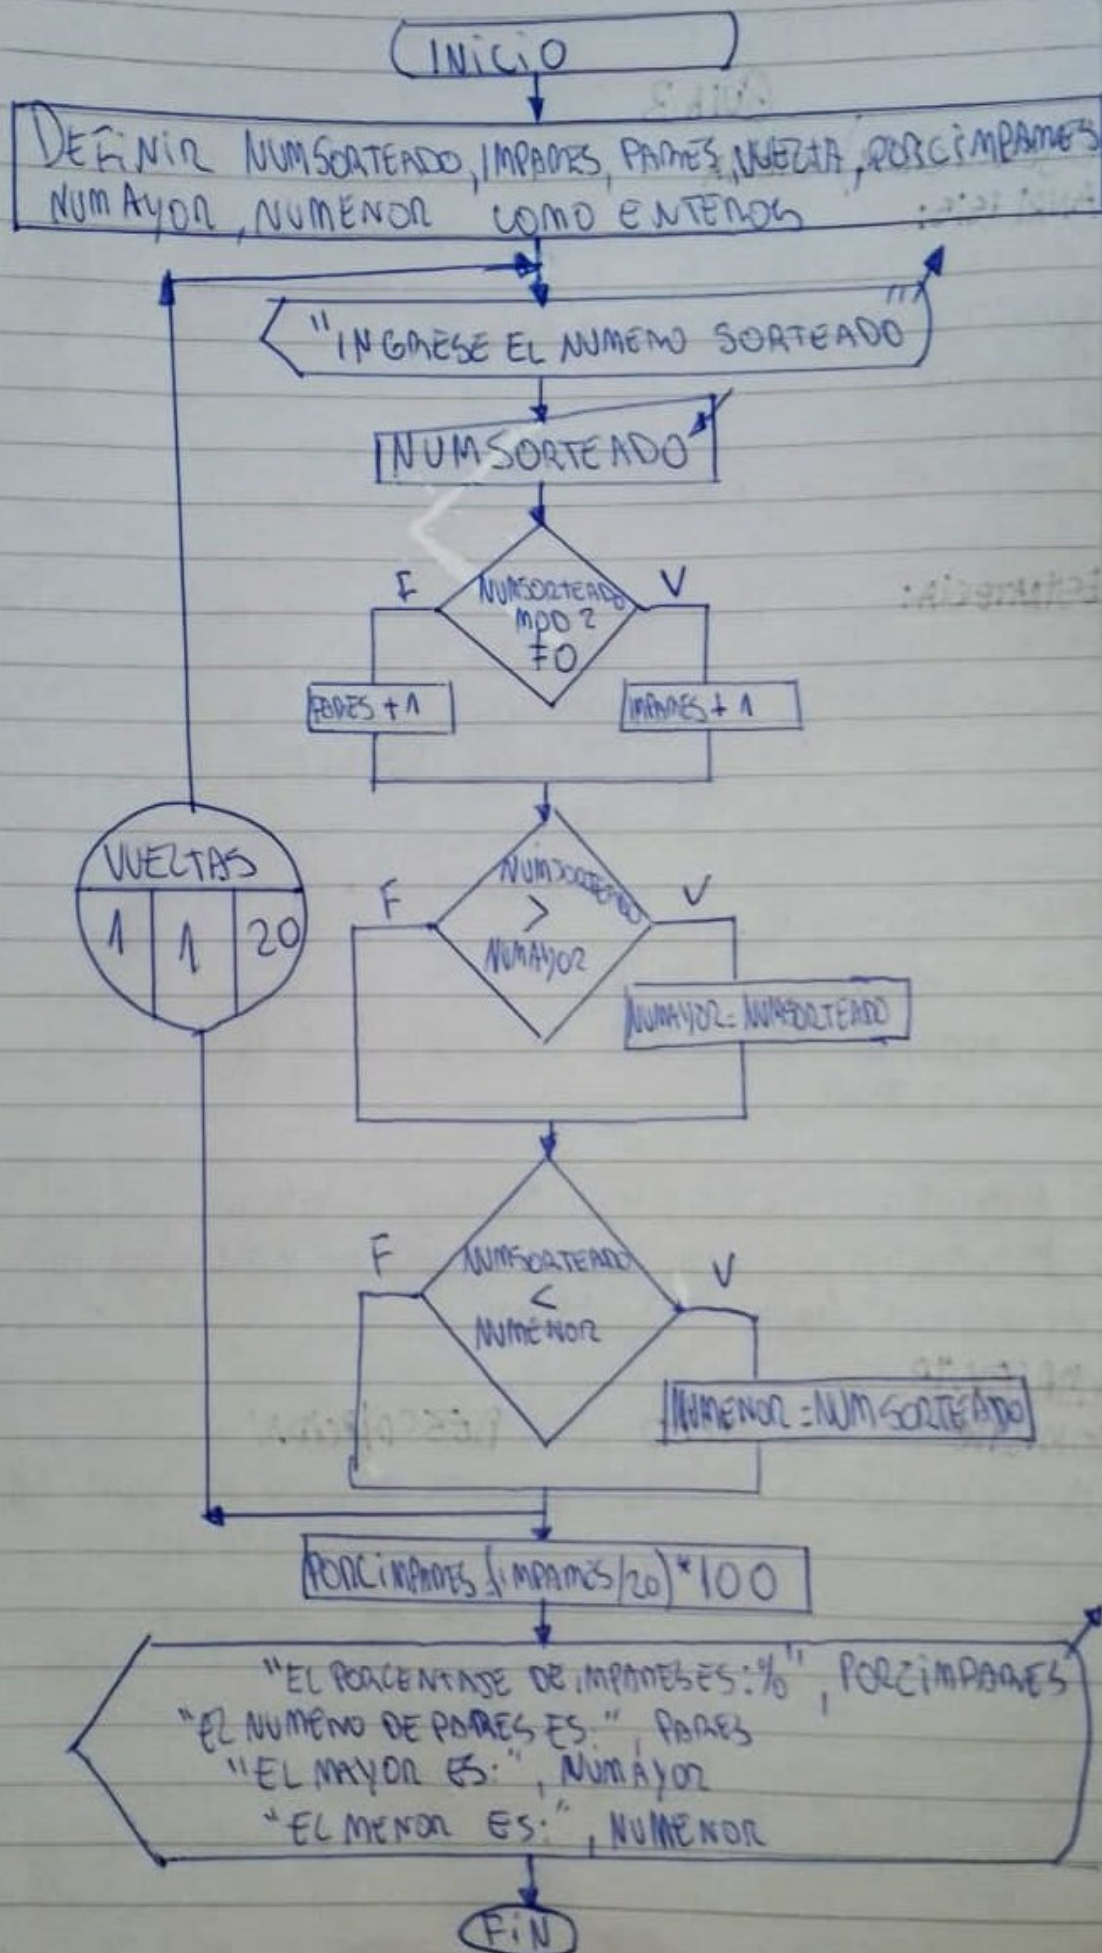 INICIO
DEFINIR NUMSORTEADO, IMPARES, PARES, VUELTA, PORCIMPARES
NUMAYOR, NUMENOR COMO ENTEROS
"INGRESE EL NUMERO SORTEADO"
NUMSORTEADO
NUMSORTEADO
MOD 2
≠0
F
V
PARES + 1
IMPARES + 1
VUELTAS
1 1 20
NUMSORTEADO
>
NUMAYOR
F
V
NUMAYOR = NUMSORTEADO
NUMSORTEADO
<
NUMENOR
F
V
NUMENOR = NUMSORTEADO
PORCIMPARES (IMPARES/20) * 100
"EL PORCENTAJE DE IMPARES ES: %", PORCIMPARES
"EL NUMERO DE PARES ES:", PARES
"EL MAYOR ES:", NUMAYOR
"EL MENOR ES:", NUMENOR
FIN